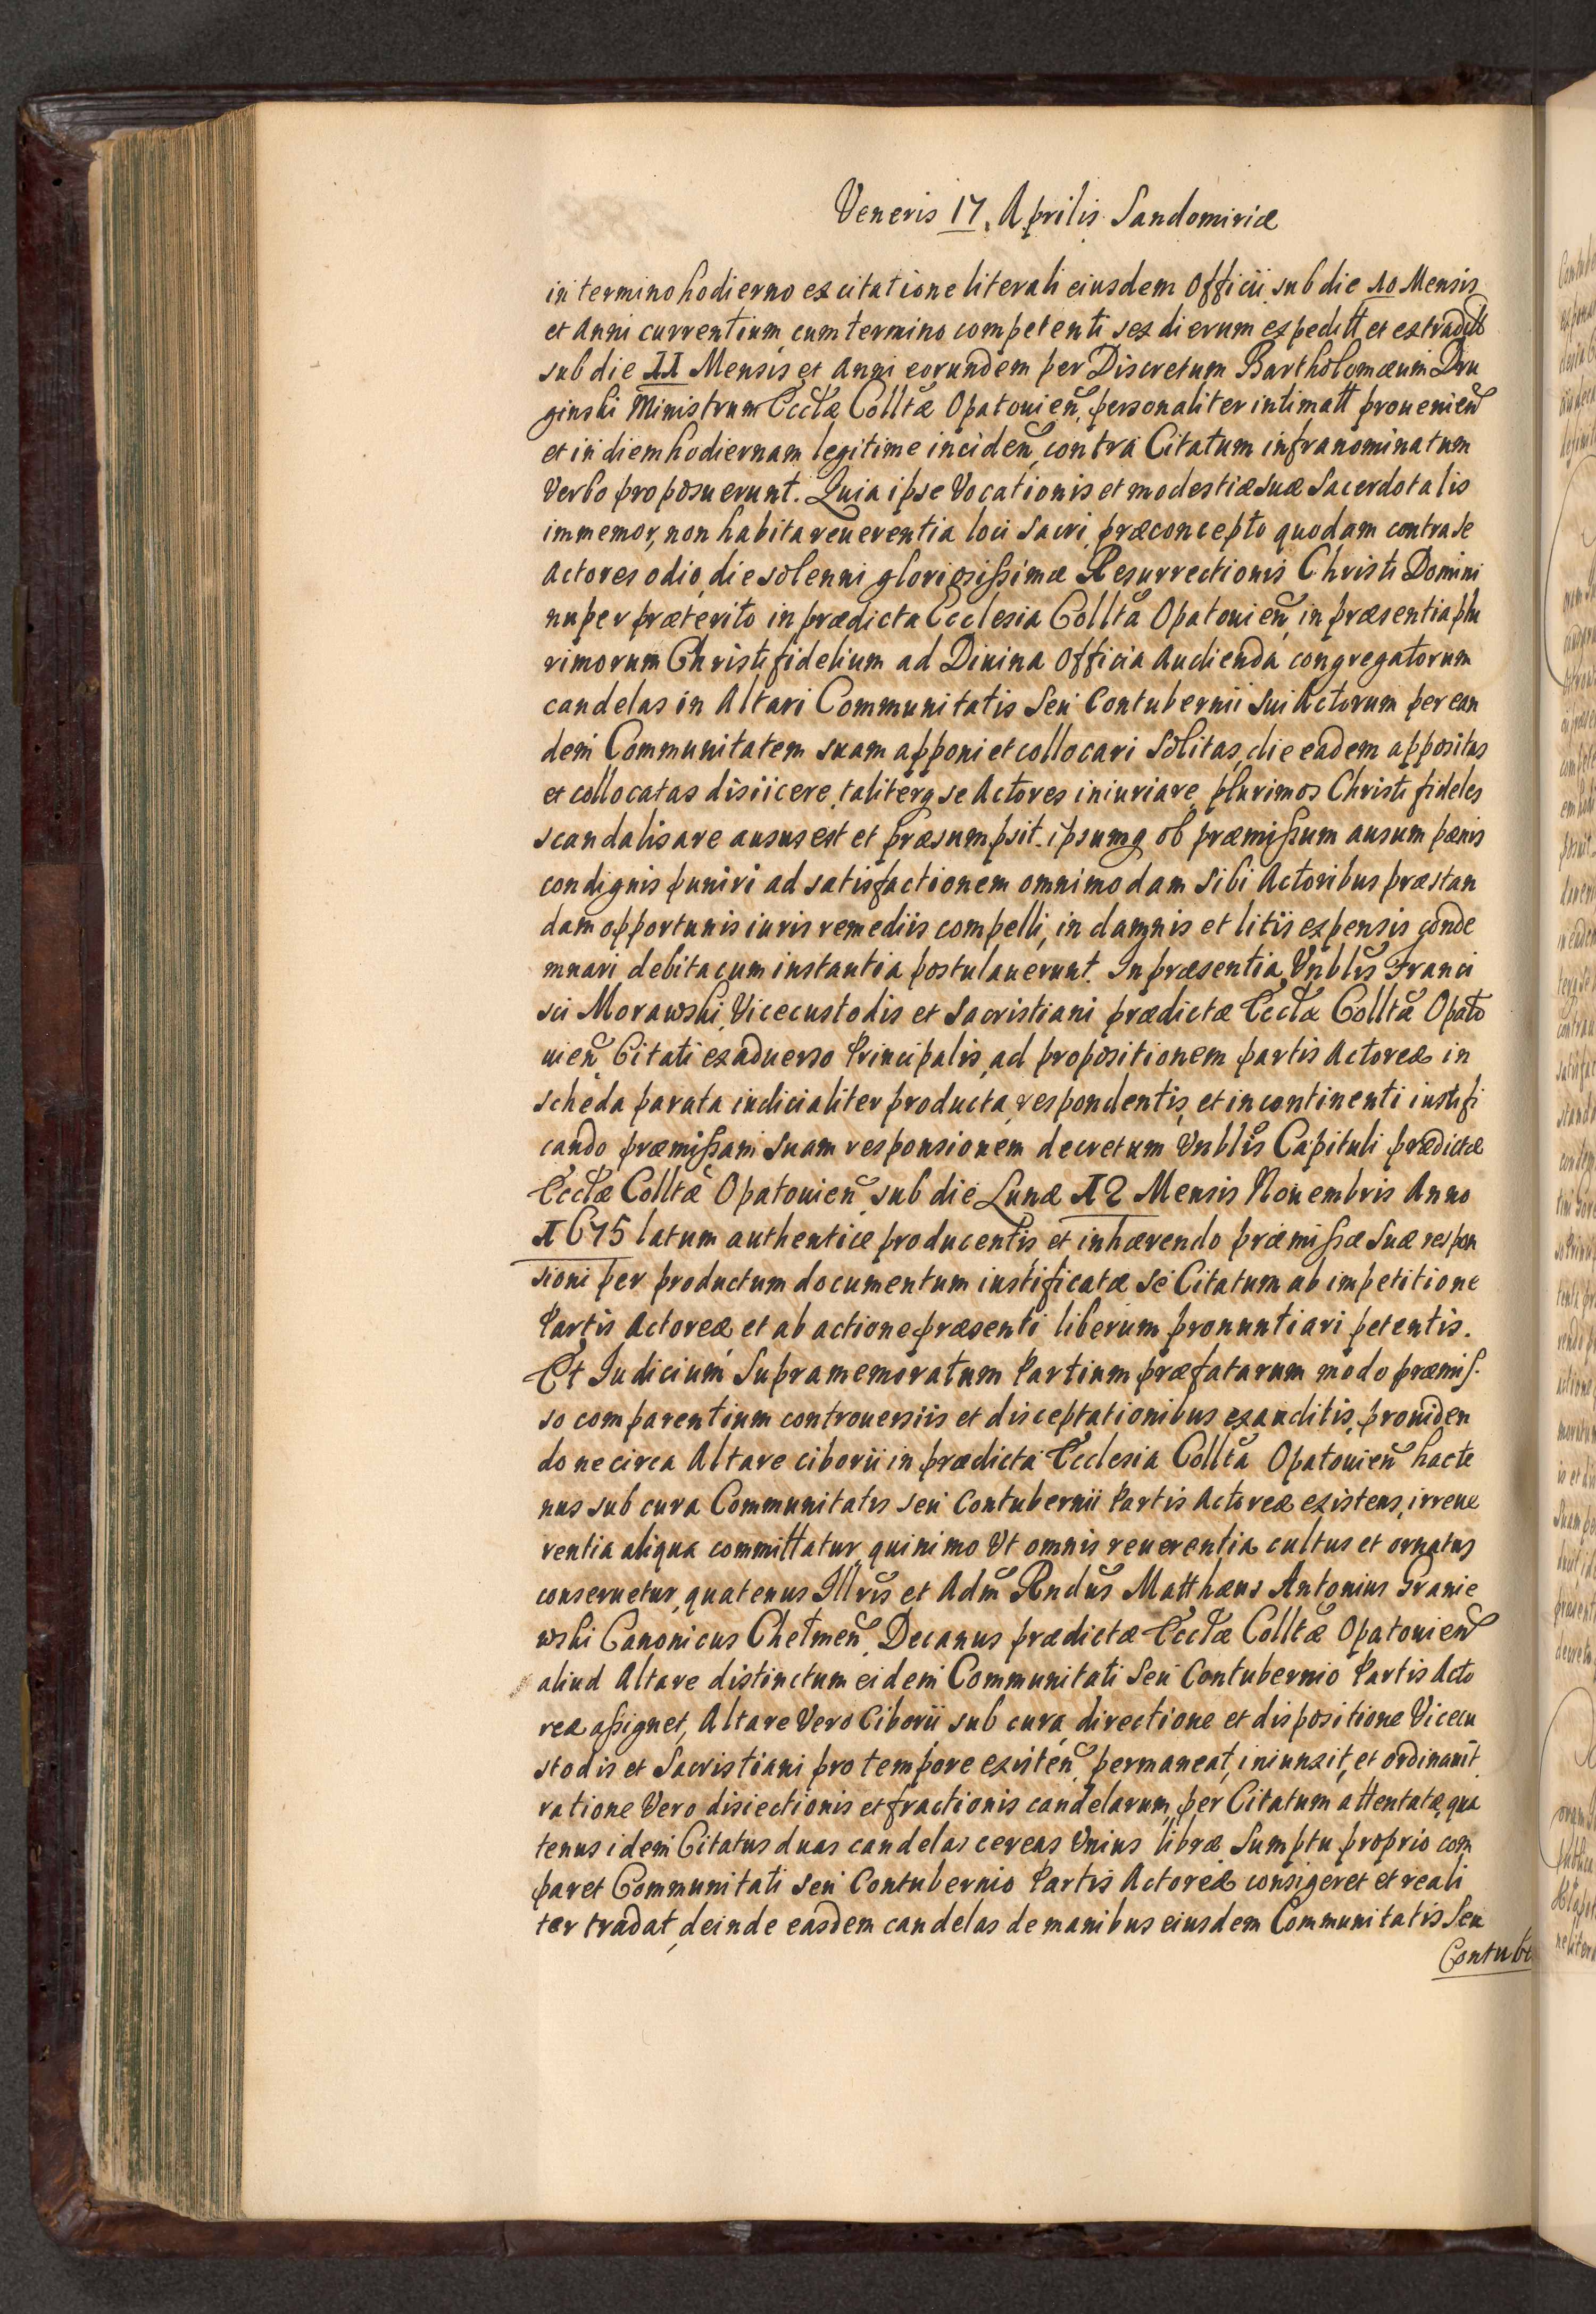 Veneris 17. Aprilis Sandomiriæ
in termino hodierno ex citatione literali eiusdem Officii sub die 10 Mensis
et Anni currentium cum termino competenti sex dierum expeditt et extraditt
sub die 11 Mensis et Anni eorundem per Discretum Bartholomæum Dru
ginski Ministrum Ecctæ Colltæ Opatouien, personaliter intimatt prouenien
et in diem hodiernam legitime inciden, contra Citatum infranominatum
Verbo proposuerunt. Quia ipse Vocationis et modestiæ suæ Sacerdotalis
immemor, non habita reuerentia loci Sacri, præconcepto quodam contra se
Actores odio, die solenni gloriosissimæ Resurrectionis Christi Domini
nuper præterito in prædicta Ecclesia Collta Opatouien, in præsentia plu
rimorum Christi fidelium ad Diuina Officia Audienda congregatorum
candelas in Altari Communitatis Seu Contubernii Sui Actorum per ean
dem Communitatem suam apponi et collocari Solitas, die eadem appositas
et collocatas disiicere, taliterq se Actores iniuriare, plurimos Christi fideles
scandalisare ausus est et præsumpsit. ipsumq ob præmissum ausum pænis
condignis puniri ad satisfactionem omnimodam Sibi Actoribus præstan
dam opportunis iuris remediis compelli, in damnis et litis expensis conde
mnari debita cum instantia postulauerunt. In præsentia Vnblis Franci
sci Morawski, Vicecustodis et Sacristiani prædictæ Ecctæ Collta Opato
uien Citati ex aduerso Principalis, ad propositionem partis Actoreæ in
scheda parata iudicialiter producta, respondentis, et incontinenti iustifi
cando præmissam Suam responsionem decretum Vnblis Capituli prædictæ
Ecctæ Colltæ Opatouien, sub die Lunæ 12 Mensis Nouembris Anno
1675 latum authentice producentis, et inhærendo præmissæ Suæ respon
sioni per productum documentum iustificatæ se Citatum ab impetitione
Partis Actoreæ et ab actione præsenti liberum pronuntiari petentis.
Et Iudicium Supramemoratum Partium præfatarum modo præmis.
so comparentium controuersiis et disceptationibus exauditis, prouiden
do ne circa Altare ciborii in prædicta Ecclesia Collta Opatouien hacte
nus sub cura Communitatis seu Contubernii Partis Actoreæ existens, irreue
rentia aliqua committatur, quinimo Vt omnis reuerentia cultus et ornatus
conseruetur, quatenus Illris et Adm Rndus Matthæus Antonius Granie
wski Canonicus Chelmen, Decanus prædictæ Ecctæ Colltæ Opatouien
aliud Altare distinctum eidem Communitati Seu Contubernio Partis Acto
reæ assignet, Altare Vero Ciborii sub cura, directione et dispositione Vicecu
stodis et Sacristiani pro tempore existen, permaneat, iniunxit, et ordinauit
ratione Vero disiectionis et fractionis candelarum, per Citatum attentatæ, qua
tenus idem Citatus duas candelas cereas Vnius libræ Sumptu proprio com
paret Communitati seu Contubernio Partis Actoreæ consigeret et reali
ter tradat, deinde easdem candelas de manibus eiusdem Communitatis Seu
Contube